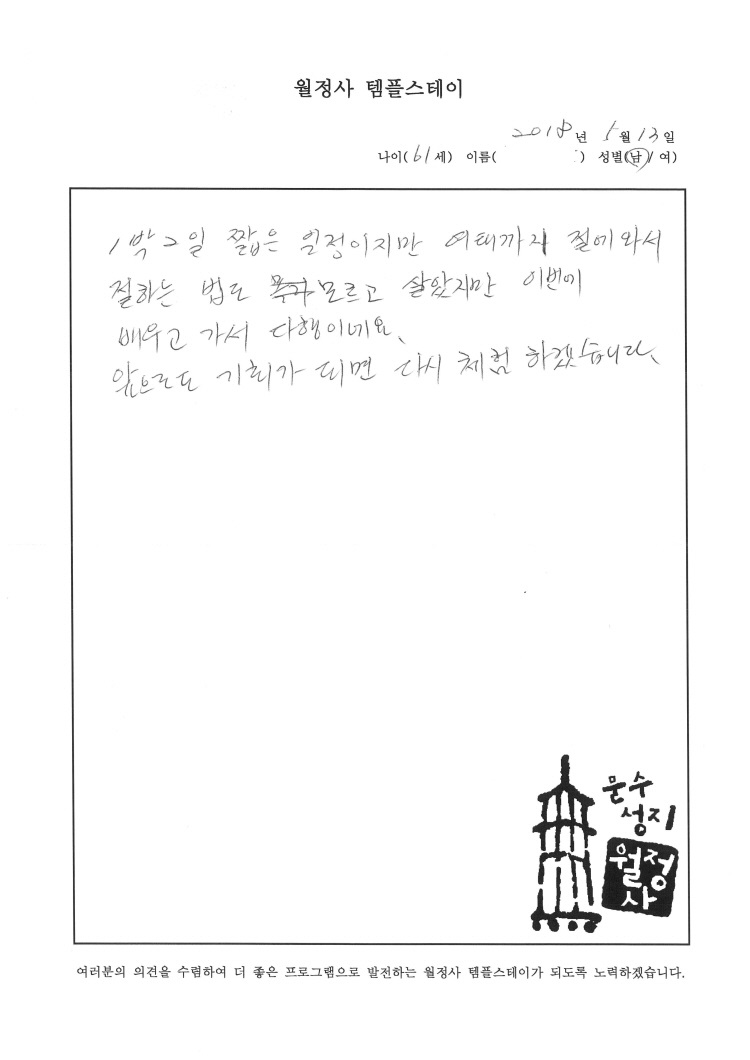 월정사 템플스테이
2018년 5월 13일
나이( 61 세) 이름( ) 성별(남 / 여)
1박 2일 짧은 일정이지만 여태까지 절에 와서
절하는 법도 모르고 살았지만 이번에
배우고 가서 다행이네요.
앞으로도 기회가 되면 다시 체험 하겠습니다.
문수
성지
월정
사
여러분의 의견을 수렴하여 더 좋은 프로그램으로 발전하는 월정사 템플스테이가 되도록 노력하겠습니다.